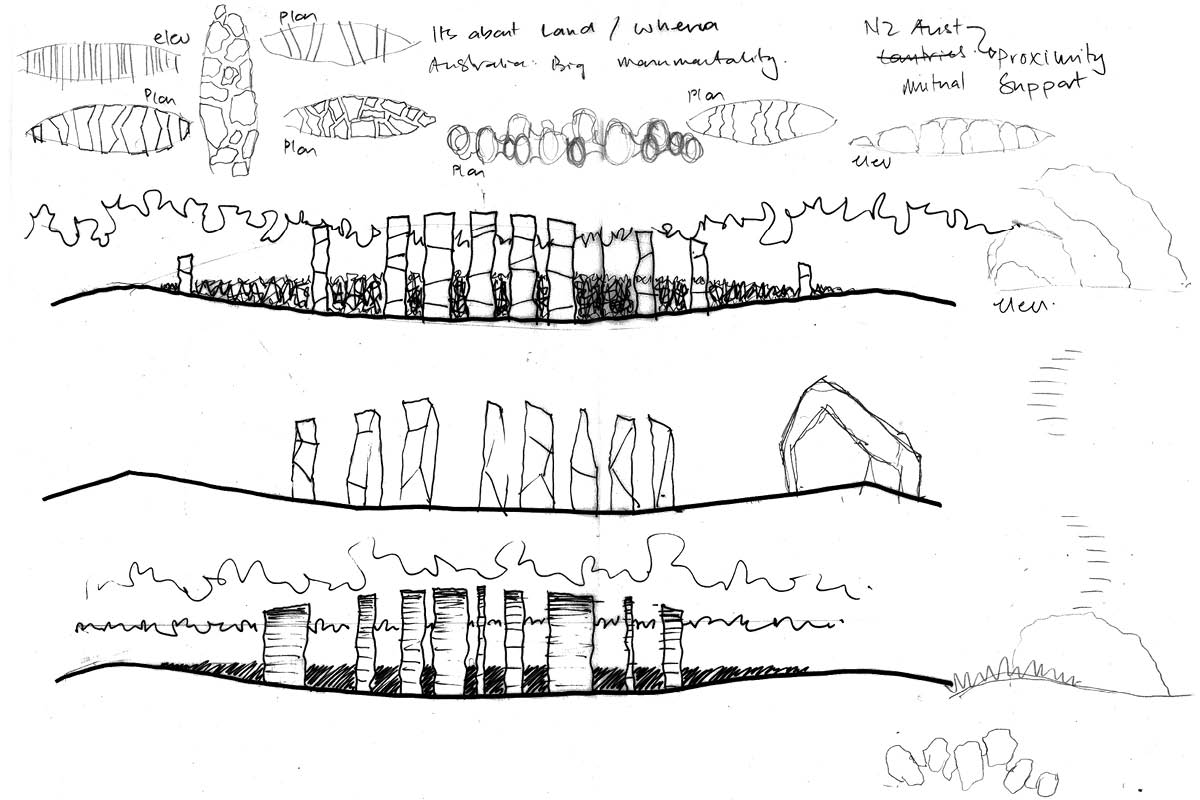 elev
Plan
Plan
Plan
Plan
Plan
elev
elev.
Its about Land / Whenua
Australia: Big monumentality.
NZ Aust
Countries Proximity
Mutual Support